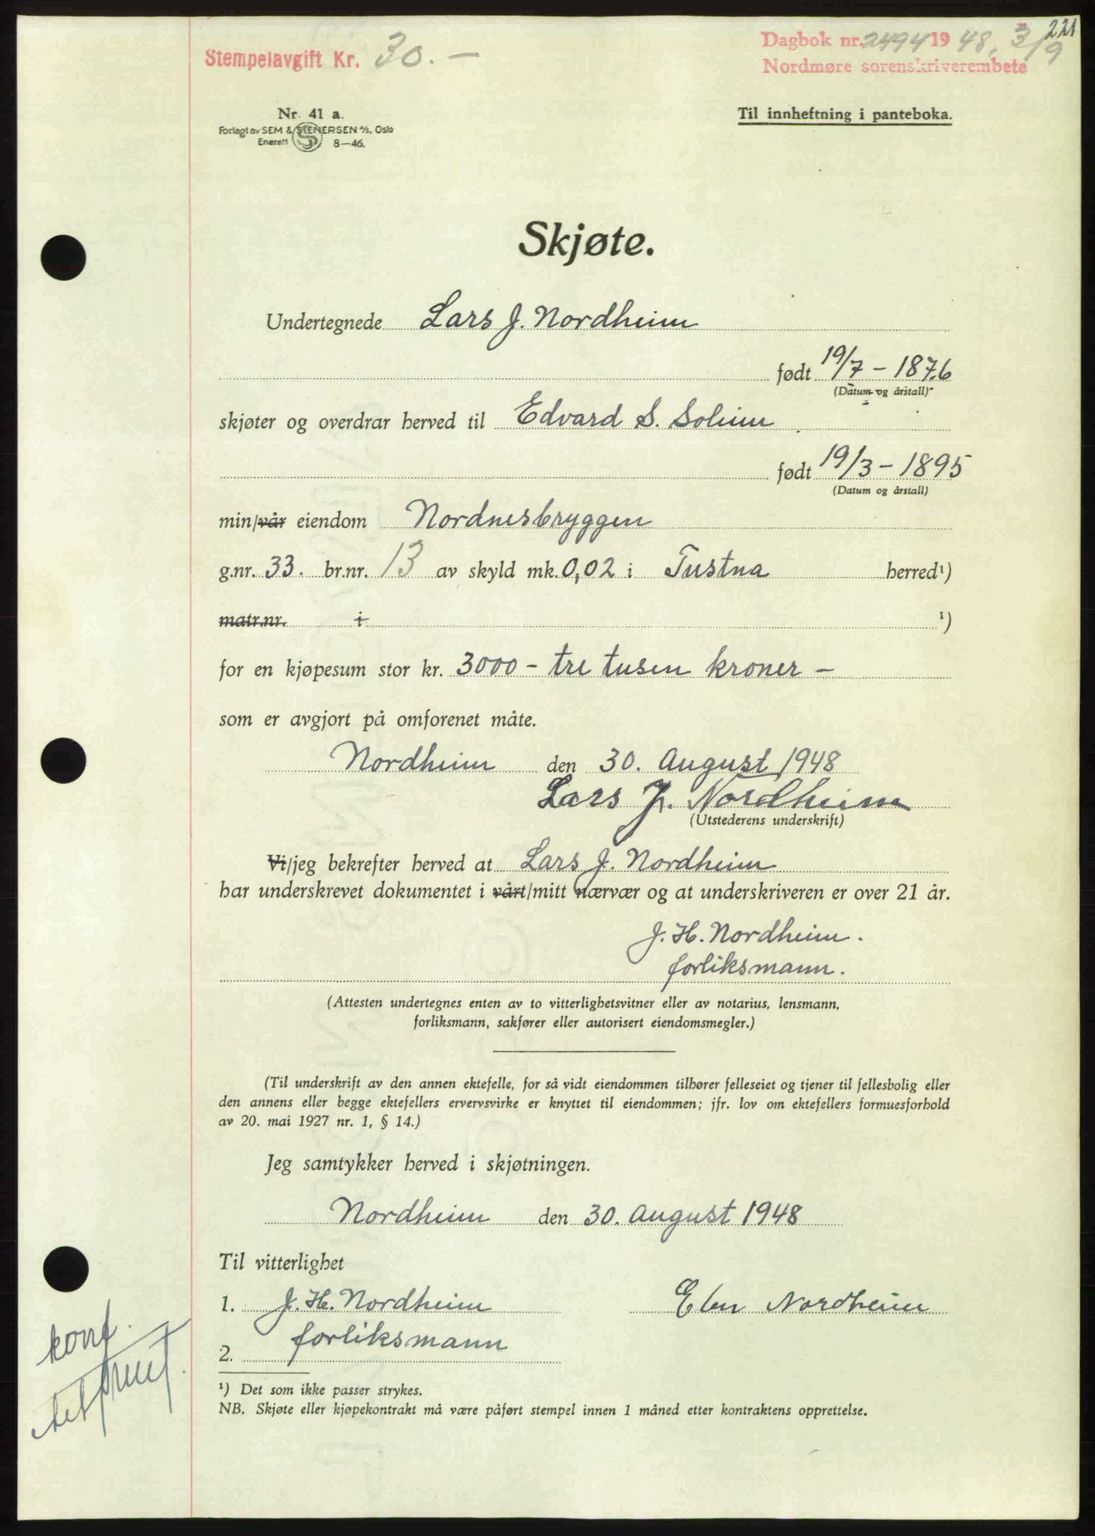 221
Stempelavgift Kr. 30.—
Dagbok nr. 2494 1948, 3/9
Nordmøre sorenskriverembete
Nr. 41 a.
Forlagt av SEM & STENERSEN A/S, Oslo
Enerett S 8—46.
Til innheftning i panteboka.
Skjøte.
Undertegnede Lars J. Nordheim
født 19/7 – 1876
(Datum og årstall)
skjøter og overdrar herved til Edvard S. Solheim
født 19/3 – 1895
(Datum og årstall)
min/vår eiendom Nordnesbryggen
g.nr. 33. br.nr. 13 av skyld mk. 0,02 i Tustna herred¹)
matr.nr. i ¹)
for en kjøpesum stor kr. 3000 – tre tusen kroner –
som er avgjort på omforenet måte.
Nordheim den 30. August 1948
Lars J. Nordheim
(Utstederens underskrift)
Vi/jeg bekrefter herved at Lars J. Nordheim
har underskrevet dokumentet i vårt/mitt nærvær og at underskriveren er over 21 år.
J. H. Nordheim.
forliksmann.
(Attesten undertegnes enten av to vitterlighetsvitner eller av notarius, lensmann,
forliksmann, sakfører eller autorisert eiendomsmegler.)
(Til underskrift av den annen ektefelle, for så vidt eiendommen tilhører felleseiet og tjener til fellesbolig eller
den annens eller begge ektefellers ervervsvirke er knyttet til eiendommen; jfr. lov om ektefellers formuesforhold
av 20. mai 1927 nr. 1, § 14.)
Jeg samtykker herved i skjøtningen.
Nordheim den 30. August 1948
Til vitterlighet
1. J. H. Nordheim Elen Nordheim
2. forliksmann
konf.
¹) Det som ikke passer strykes.
NB. Skjøte eller kjøpekontrakt må være påført stempel innen 1 måned etter kontraktens opprettelse.